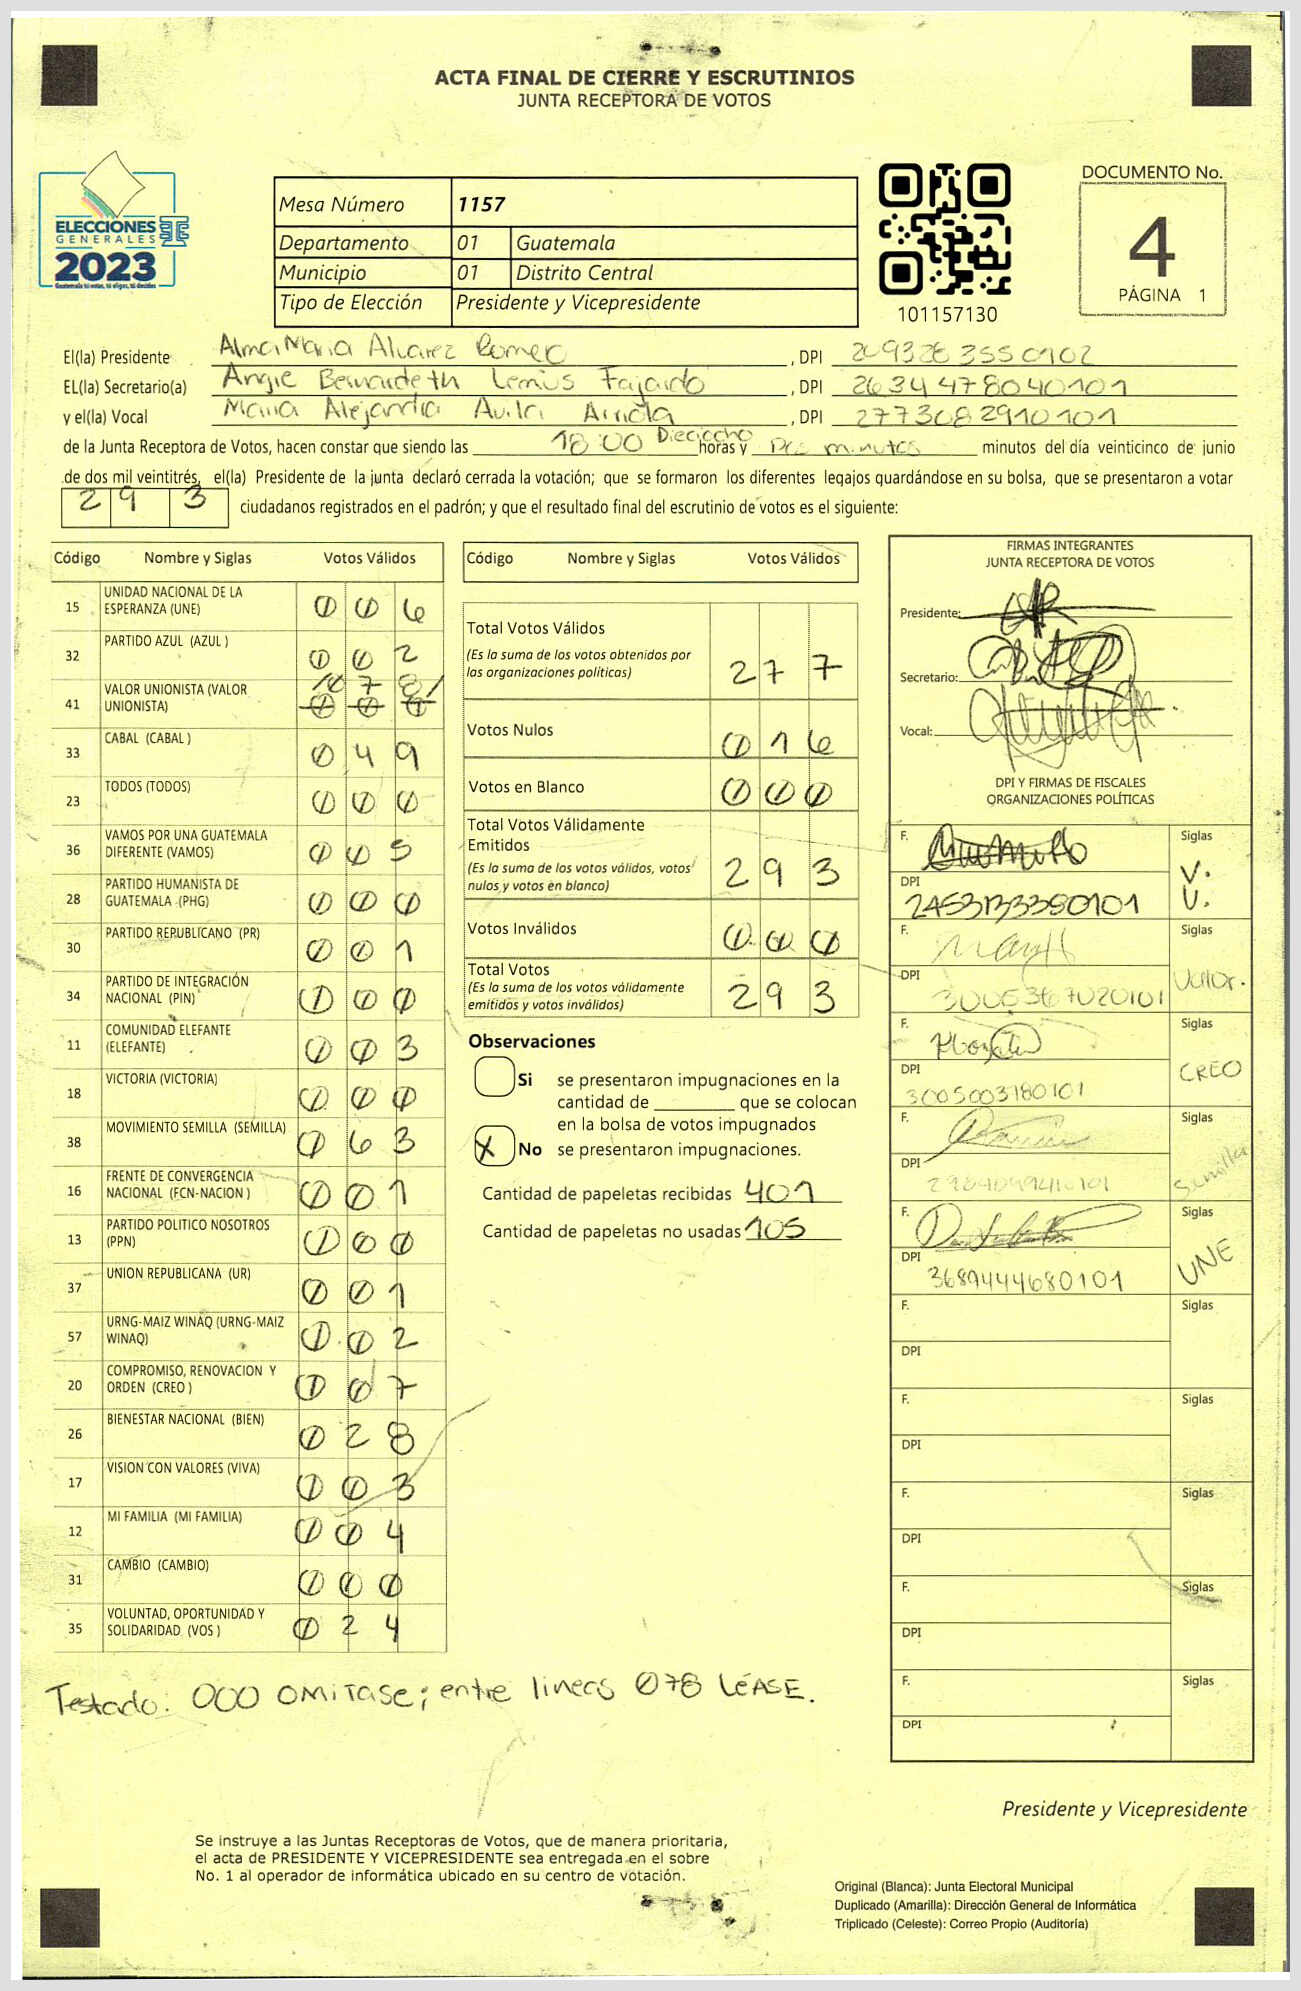 ACTA FINAL DE CIERRE Y ESCRUTINIOS
JUNTA RECEPTORA DE VOTOS
ELECCIONES
GENERALES
2023
Guatemala tú votas, tú eliges, tú decides
Mesa Número 1157
Departamento 01 Guatemala
Municipio 01 Distrito Central
Tipo de Elección Presidente y Vicepresidente
101157130
DOCUMENTO No.
4
PÁGINA 1
El(la) Presidente Alma Maria Alvarez Romero , DPI 2093263550102
EL(la) Secretario(a) Angie Bernardeth Lemus Fajardo , DPI 2634478040101
y el(la) Vocal Maria Alejandra Avila Arriola , DPI 2773082910101
de la Junta Receptora de Votos, hacen constar que siendo las 18:00 Dieciocho horas y Dos minutos minutos del día veinticinco de junio
de dos mil veintitrés, el(la) Presidente de la junta declaró cerrada la votación; que se formaron los diferentes legajos quardándose en su bolsa, que se presentaron a votar
293 ciudadanos registrados en el padrón; y que el resultado final del escrutinio de votos es el siguiente:
Código Nombre y Siglas Votos Válidos
15 UNIDAD NACIONAL DE LA ESPERANZA (UNE) 006
32 PARTIDO AZUL (AZUL ) 002
41 VALOR UNIONISTA (VALOR UNIONISTA) 078 000
33 CABAL (CABAL ) 049
23 TODOS (TODOS) 000
36 VAMOS POR UNA GUATEMALA DIFERENTE (VAMOS) 005
28 PARTIDO HUMANISTA DE GUATEMALA (PHG) 000
30 PARTIDO REPUBLICANO (PR) 001
34 PARTIDO DE INTEGRACIÓN NACIONAL (PIN) 000
11 COMUNIDAD ELEFANTE (ELEFANTE) 003
18 VICTORIA (VICTORIA) 000
38 MOVIMIENTO SEMILLA (SEMILLA) 063
16 FRENTE DE CONVERGENCIA NACIONAL (FCN-NACION ) 001
13 PARTIDO POLITICO NOSOTROS (PPN) 000
37 UNION REPUBLICANA (UR) 001
57 URNG-MAIZ WINAQ (URNG-MAIZ WINAQ) 002
20 COMPROMISO, RENOVACION Y ORDEN (CREO ) 007
26 BIENESTAR NACIONAL (BIEN) 028
17 VISION CON VALORES (VIVA) 003
12 MI FAMILIA (MI FAMILIA) 004
31 CAMBIO (CAMBIO) 000
35 VOLUNTAD, OPORTUNIDAD Y SOLIDARIDAD (VOS ) 024
Código Nombre y Siglas Votos Válidos
Total Votos Válidos 277
(Es la suma de los votos obtenidos por
las organizaciones políticas)
Votos Nulos 016
Votos en Blanco 000
Total Votos Válidamente
Emitidos 293
(Es la suma de los votos válidos, votos
nulos y votos en blanco)
Votos Inválidos 000
Total Votos 293
(Es la suma de los votos válidamente
emitidos y votos inválidos)
Observaciones
Si se presentaron impugnaciones en la
cantidad de ________ que se colocan
en la bolsa de votos impugnados
X No se presentaron impugnaciones.
Cantidad de papeletas recibidas 401
Cantidad de papeletas no usadas 105
FIRMAS INTEGRANTES
JUNTA RECEPTORA DE VOTOS
Presidente:
Secretario:
Vocal:
DPI Y FIRMAS DE FISCALES
ORGANIZACIONES POLÍTICAS
F. Siglas V.
DPI U.
F. Siglas
DPI 3005367020101 Valor.
F. Siglas
DPI CREO
3005003180101
F. Siglas
DPI Semilla
F. Siglas
DPI UNE
3689444680101
F. Siglas
DPI
F. Siglas
DPI
F. Siglas
DPI
F. Siglas
DPI
F. Siglas
DPI
Testado: 000 OMITASE; entre lineas 078 LÉASE.
Presidente y Vicepresidente
Se instruye a las Juntas Receptoras de Votos, que de manera prioritaria,
el acta de PRESIDENTE Y VICEPRESIDENTE sea entregada en el sobre
No. 1 al operador de informática ubicado en su centro de votación.
Original (Blanca): Junta Electoral Municipal
Duplicado (Amarilla): Dirección General de Informática
Triplicado (Celeste): Correo Propio (Auditoría)